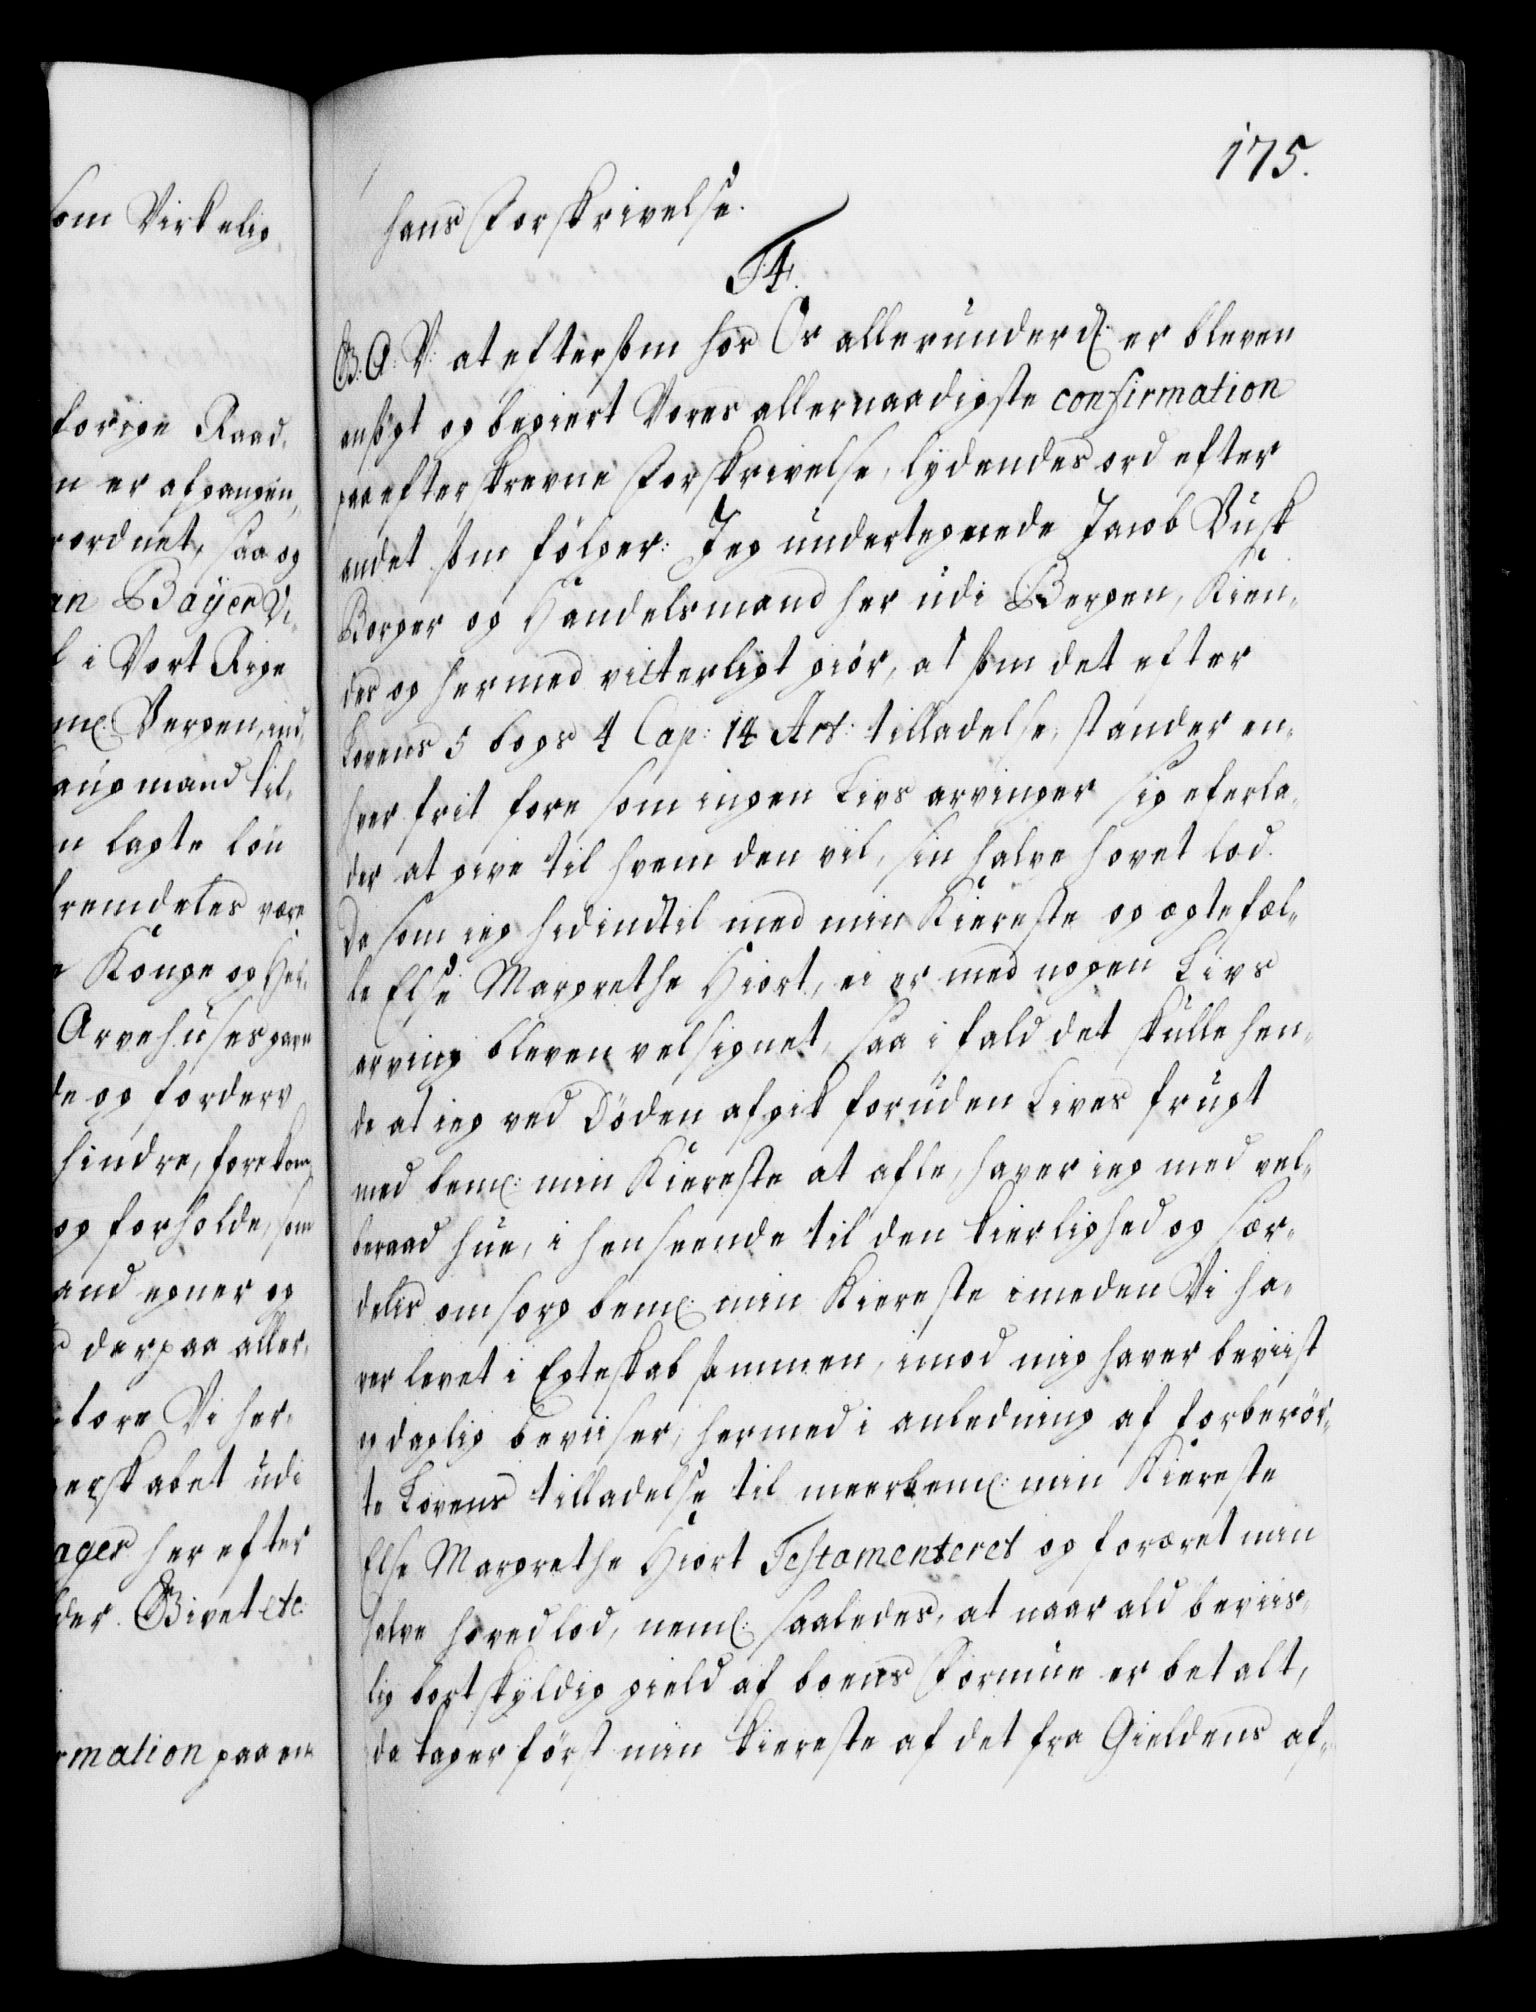 som Virkelig
forige Raad,
n er afgangen,
rordnet, saa og
an Bayer Vi-
l i Vort Rige
Bergen, ind,
augmand til-
n lagte lön
fremdeles være
Konge og Her-
Arvehuses gavn
de og forderv
hindre, forekom,
og forholde, som
and egner og
derpaa aller-
tore Vi her-
erskabet udi
ager her efter
der. Givet etc:
rmation paa en
175.
hans Forskrivelse.
F4.
G: A: V: at eftersom hos Os allerunderd: er bleven
ansögt og begiert Vores allernaadigste confirmation
paa efterskrevne Forskrivelse, lydendes ord efter
andet som fölger: Jeg undertegnede Jacob Busk
Borger og Handelsmand her udi Bergen, Kien-
des og hermed vitterligt giör, at som det efter
Lovens 5 bogs 4 Cap: 14 Art: tilladelse, stander en-
hver frit fore som ingen Livs arvinger sig eferla-
der at give til hvem den vil, sin halve hovet lod.
Da som ieg hidindtil med min Kiereste og ægtefæl-
le Else Margrethe Hiort, ei er med nogen Livs
arving bleven velsignet, saa i fald det skulle hen-
de at ieg ved Döden afgik foruden Lives frugt
med bem: min Kiereste at afle, haver ieg med vel-
beraad hue, i henseende til den kierlighed og sær-
delis omsorg bem: min Kiereste imeden Vi ha-
ver levet i Egteskab sammen, imod mig haver beviist
og daglig beviiser, hermed i anledning af forberör-
te Lovens tilladelse til meerbem: min Kiereste
Else Margrethe Hiort Testamenteret og foræret min
halve hovedlod, neml: saaledes, at naar ald beviis-
lig bortskyldig gield af boens Formue er betalt,
da tager först min kiereste af det fra Gieldens af-